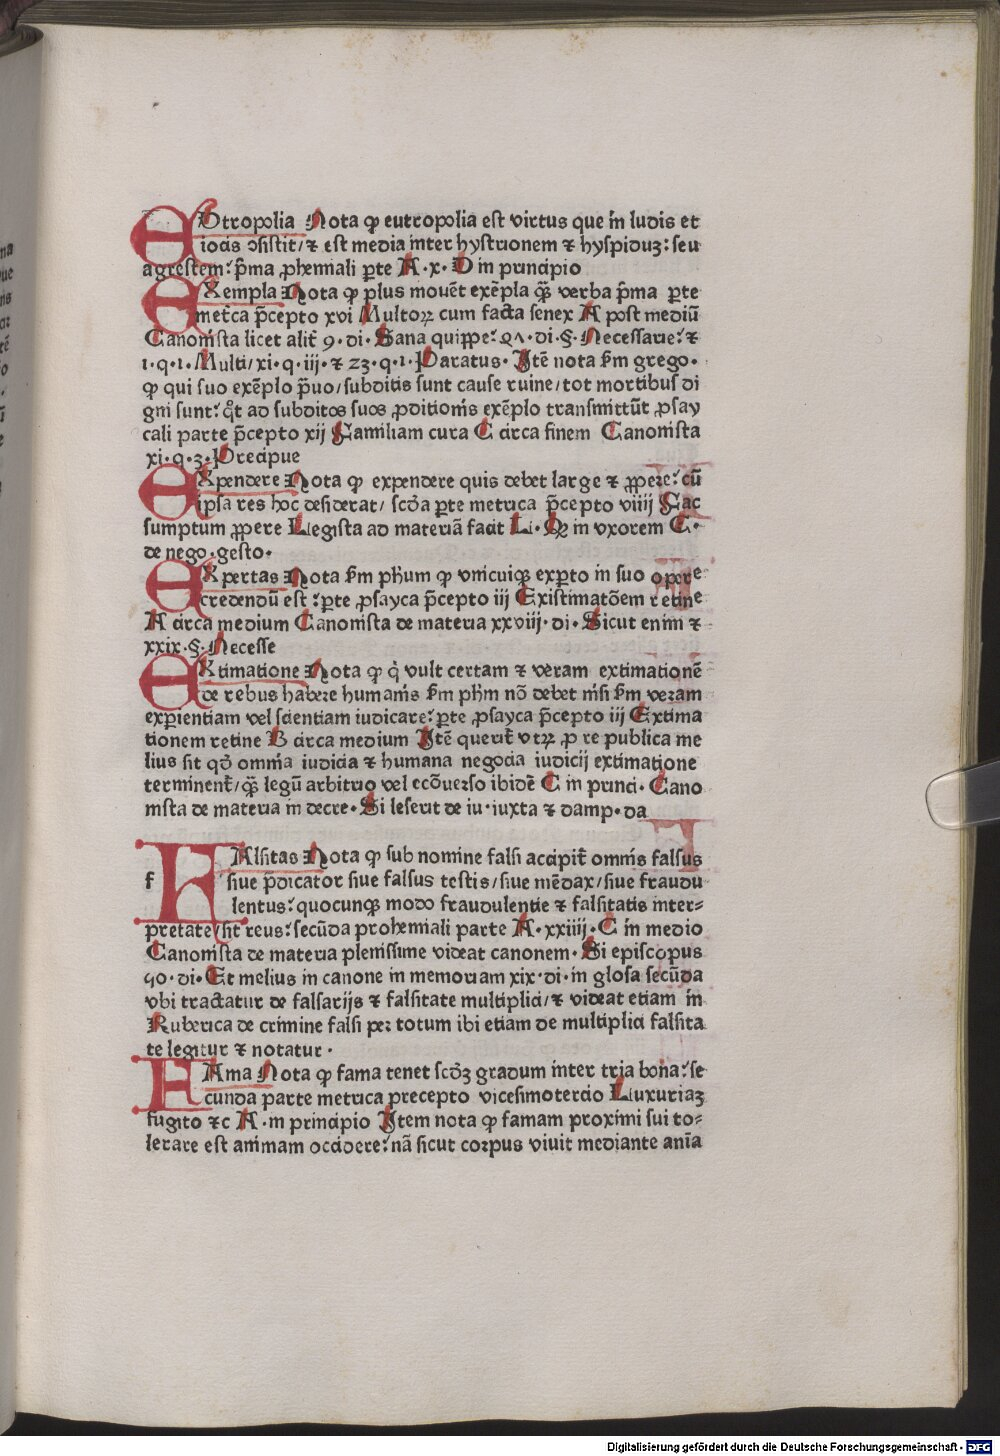 EUtropolia Nota ꝙ eutropolia est virtus que in ludis et
iocis ↄsistit/ ⁊ est media inter hystrionem ⁊ hyspiduʒ: seu
agrestem: p̄ma ꝓhemiali ꝑte A·x·D in principio
EXempla Nota ꝙ plus mouēt exēpla q̄ꝫ verba p̄ma ꝑte
metᷓca p̄cepto xvi Multoꝝ cum facta senex A post mediū
Canonista licet alit̄ 9·di·Sana quippe: 21·di·§·Necessarie: ⁊
1·q·1·Multi/xi·q·iij·⁊ 23·q·1·Paratus·Itē nota s̄m grego·
ꝙ qui suo exēplo p̄uo/subditis sunt cause ruine/tot mortibus di
gni sunt: q̊t ad subditos suos ꝑditionis exēplo transmittūt ꝓsay
cali parte p̄cepto xij Familiam cura C circa finem Canonista
xi·q·3·Precipue
EXpendere Nota ꝙ expendere quis debet large ⁊ ꝓpere: cū
ipsa res hoc desiderat/ scd̄a ꝑte metrica p̄cepto viiij Fac
sumptum ꝓpere Legista ad materiā facit L·Qꝫ in vxorem C·
de nego·gesto·
EXpertas Nota s̄m ph̄um ꝙ vnicuiqꝫ exꝑto in suo opere
credendū est: ꝑte ꝓsayca p̄cepto iij Existimatōem retine
A circa medium Canonista de materia xxviij·di·Sicut enim ⁊
xxix·§·Necesse
EXtimatione Nota ꝙ qͥ vult certam ⁊ veram extimationē
de rebus habere humanis s̄m ph̄m nō debet nisi s̄m veram
expientiam vel scientiam iudicare: ꝑte ꝓsayca p̄cepto iij Extima
tionem retine B circa medium Itē querit̄ vtꝝ ꝓ re publica me
lius sit qd̄ omnia iudicia ⁊ humana negocia iudicij extimatione
terminent̄/q̄ꝫ legū arbitrio vel ecōuerso ibidē C in princi·Cano
nista de materia in decre·Si leserit de iu·iuxta ⁊ damp·da
f
FAlsitas Nota ꝙ sub nomine falsi accipit̄ omnis falsus
siue p̄dicator siue falsus testis/siue mēdax/siue fraudu
lentus: quocunqꝫ modo fraudulentie ⁊ falsitatis inter⸗
pretate/sit reus: secūda prohemiali parte A·xxiiij·C in medio
Canonista de materia plenissime videat canonem·Si episcopus
50·di·Et melius in canone in memoriam xix·di·in glosa secūda
vbi tractatur de falsarijs ⁊ falsitate multiplici/⁊ videat etiam in
Ruberica de crimine falsi per totum ibi etiam de multiplici falsita
te legitur ⁊ notatur·
FAma Nota ꝙ fama tenet scd̄ʒ gradum inter tria bona: se
cunda parte metrica precepto vicesimotercio Luxuriaʒ
fugito ⁊c A·in principio Item nota ꝙ famam proximi sui to⸗
lerare est animam occidere: nā sicut corpus viuit mediante anīa
Digitalisierung gefördert durch die Deutsche Forschungsgemeinschaft · DFG